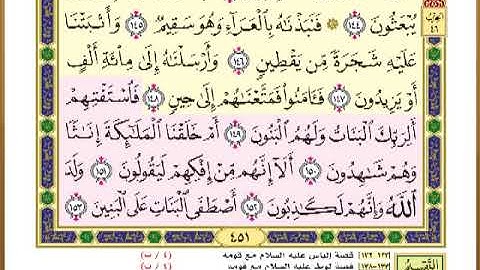 يُبْعَثُونَ ١٤٤ ۞ فَنَبَذْنَٰهُ بِٱلْعَرَآءِ وَهُوَ سَقِيمٌ ١٤٥ وَأَنۢبَتْنَا
عَلَيْهِ شَجَرَةً مِّن يَقْطِينٍ ١٤٦ وَأَرْسَلْنَٰهُ إِلَىٰ مِا۟ئَةِ أَلْفٍ
أَوْ يَزِيدُونَ ١٤٧ فَـَٔامَنُوا۟ فَمَتَّعْنَٰهُمْ إِلَىٰ حِينٍ ١٤٨ فَٱسْتَفْتِهِمْ
أَلِرَبِّكَ ٱلْبَنَاتُ وَلَهُمُ ٱلْبَنُونَ ١٤٩ أَمْ خَلَقْنَا ٱلْمَلَٰٓئِكَةَ إِنَٰثًا
وَهُمْ شَٰهِدُونَ ١٥٠ أَلَآ إِنَّهُم مِّنْ إِفْكِهِمْ لَيَقُولُونَ ١٥١ وَلَدَ
ٱللَّهُ وَإِنَّهُمْ لَكَٰذِبُونَ ١٥٢ أَصْطَفَى ٱلْبَنَاتِ عَلَى ٱلْبَنِينَ ١٥٣
٤٥١
قصة إلياس عليه السلام مع قومه
قصة لوط عليه السلام مع قومه